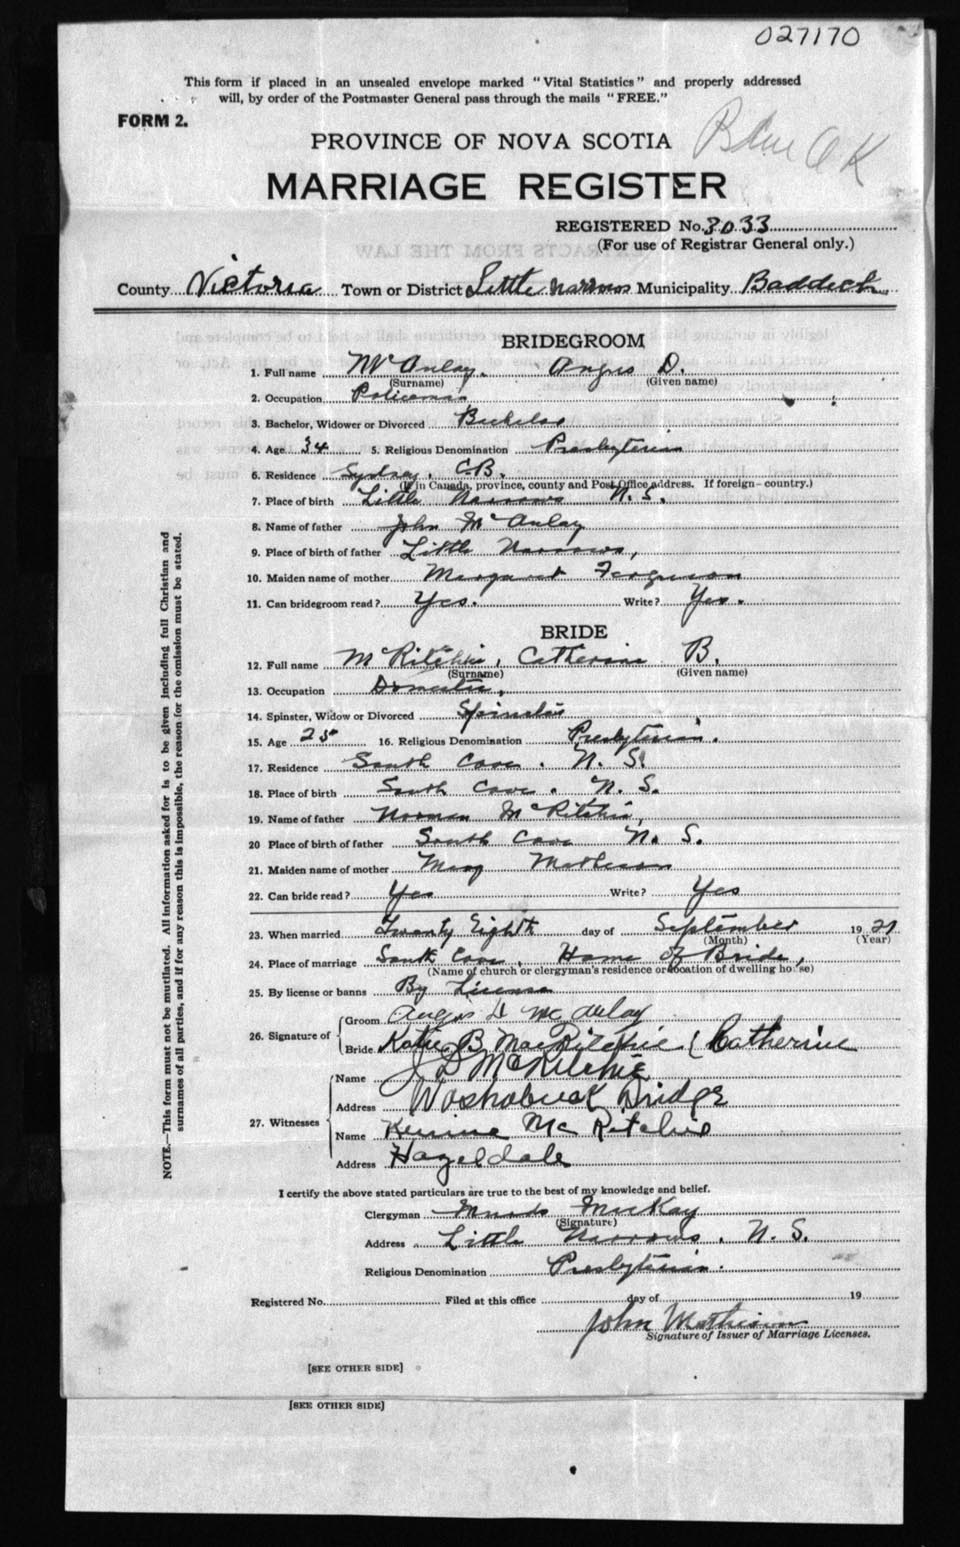 027170
This form if placed in an unsealed envelope marked "Vital Statistics" and properly addressed
will, by order of the Postmaster General pass through the mails "FREE."
FORM 2.
PROVINCE OF NOVA SCOTIA
O K
MARRIAGE REGISTER
REGISTERED No. 3033
(For use of Registrar General only.)
EXTRACTS FROM THE LAW
County Victoria Town or District Little Narrows Municipality Baddeck
BRIDEGROOM
1. Full name McAulay. Angus D.
(Surname) (Given name)
2. Occupation Policeman
3. Bachelor, Widower or Divorced Bachelor
4. Age 34 5. Religious Denomination Presbyterian
6. Residence Sydney, C.B.
(If in Canada, province, county and Post Office address. If foreign-country.)
7. Place of birth Little Narrows N.S.
8. Name of father John McAulay
9. Place of birth of father Little Narrows,
10. Maiden name of mother Margaret Ferguson
11. Can bridegroom read? Yes. Write? Yes.
BRIDE
12. Full name McRitchie, Catherine B.
(Surname) (Given name)
13. Occupation Domestic,
14. Spinster, Widow or Divorced Spinster
15. Age 25 16. Religious Denomination Presbyterian.
17. Residence South Cove. N. S.
18. Place of birth South Cove. N. S.
19. Name of father Norman McRitchie,
20 Place of birth of father South Cove N. S.
21. Maiden name of mother Mary Matheson
22. Can bride read? Yes Write? Yes
23. When married Twenty Eighth day of September 1921
(Month) (Year)
24. Place of marriage South Cove, Home of Bride,
(Name of church or clergyman's residence or location of dwelling house)
25. By license or banns By License
26. Signature of Groom Angus D McAulay
Bride Katie B MacRitchie (Catherine
27. Witnesses Name J D McRitchie
Address Washabuck Bridge
Name McRitchie
Address Hazeldale
I certify the above stated particulars are true to the best of my knowledge and belief.
Clergyman McKay
(Signature)
Address Little Narrows. N. S.
Religious Denomination Presbyterian.
Registered No. Filed at this office day of 19
John Mathieson
Signature of Issuer of Marriage Licenses.
[SEE OTHER SIDE]
[SEE OTHER SIDE]
NOTE.—This form must not be mutilated. All information asked for is to be given including full Christian and
surnames of all parties, and if for any reason this is impossible, the reason for the omission must be stated.